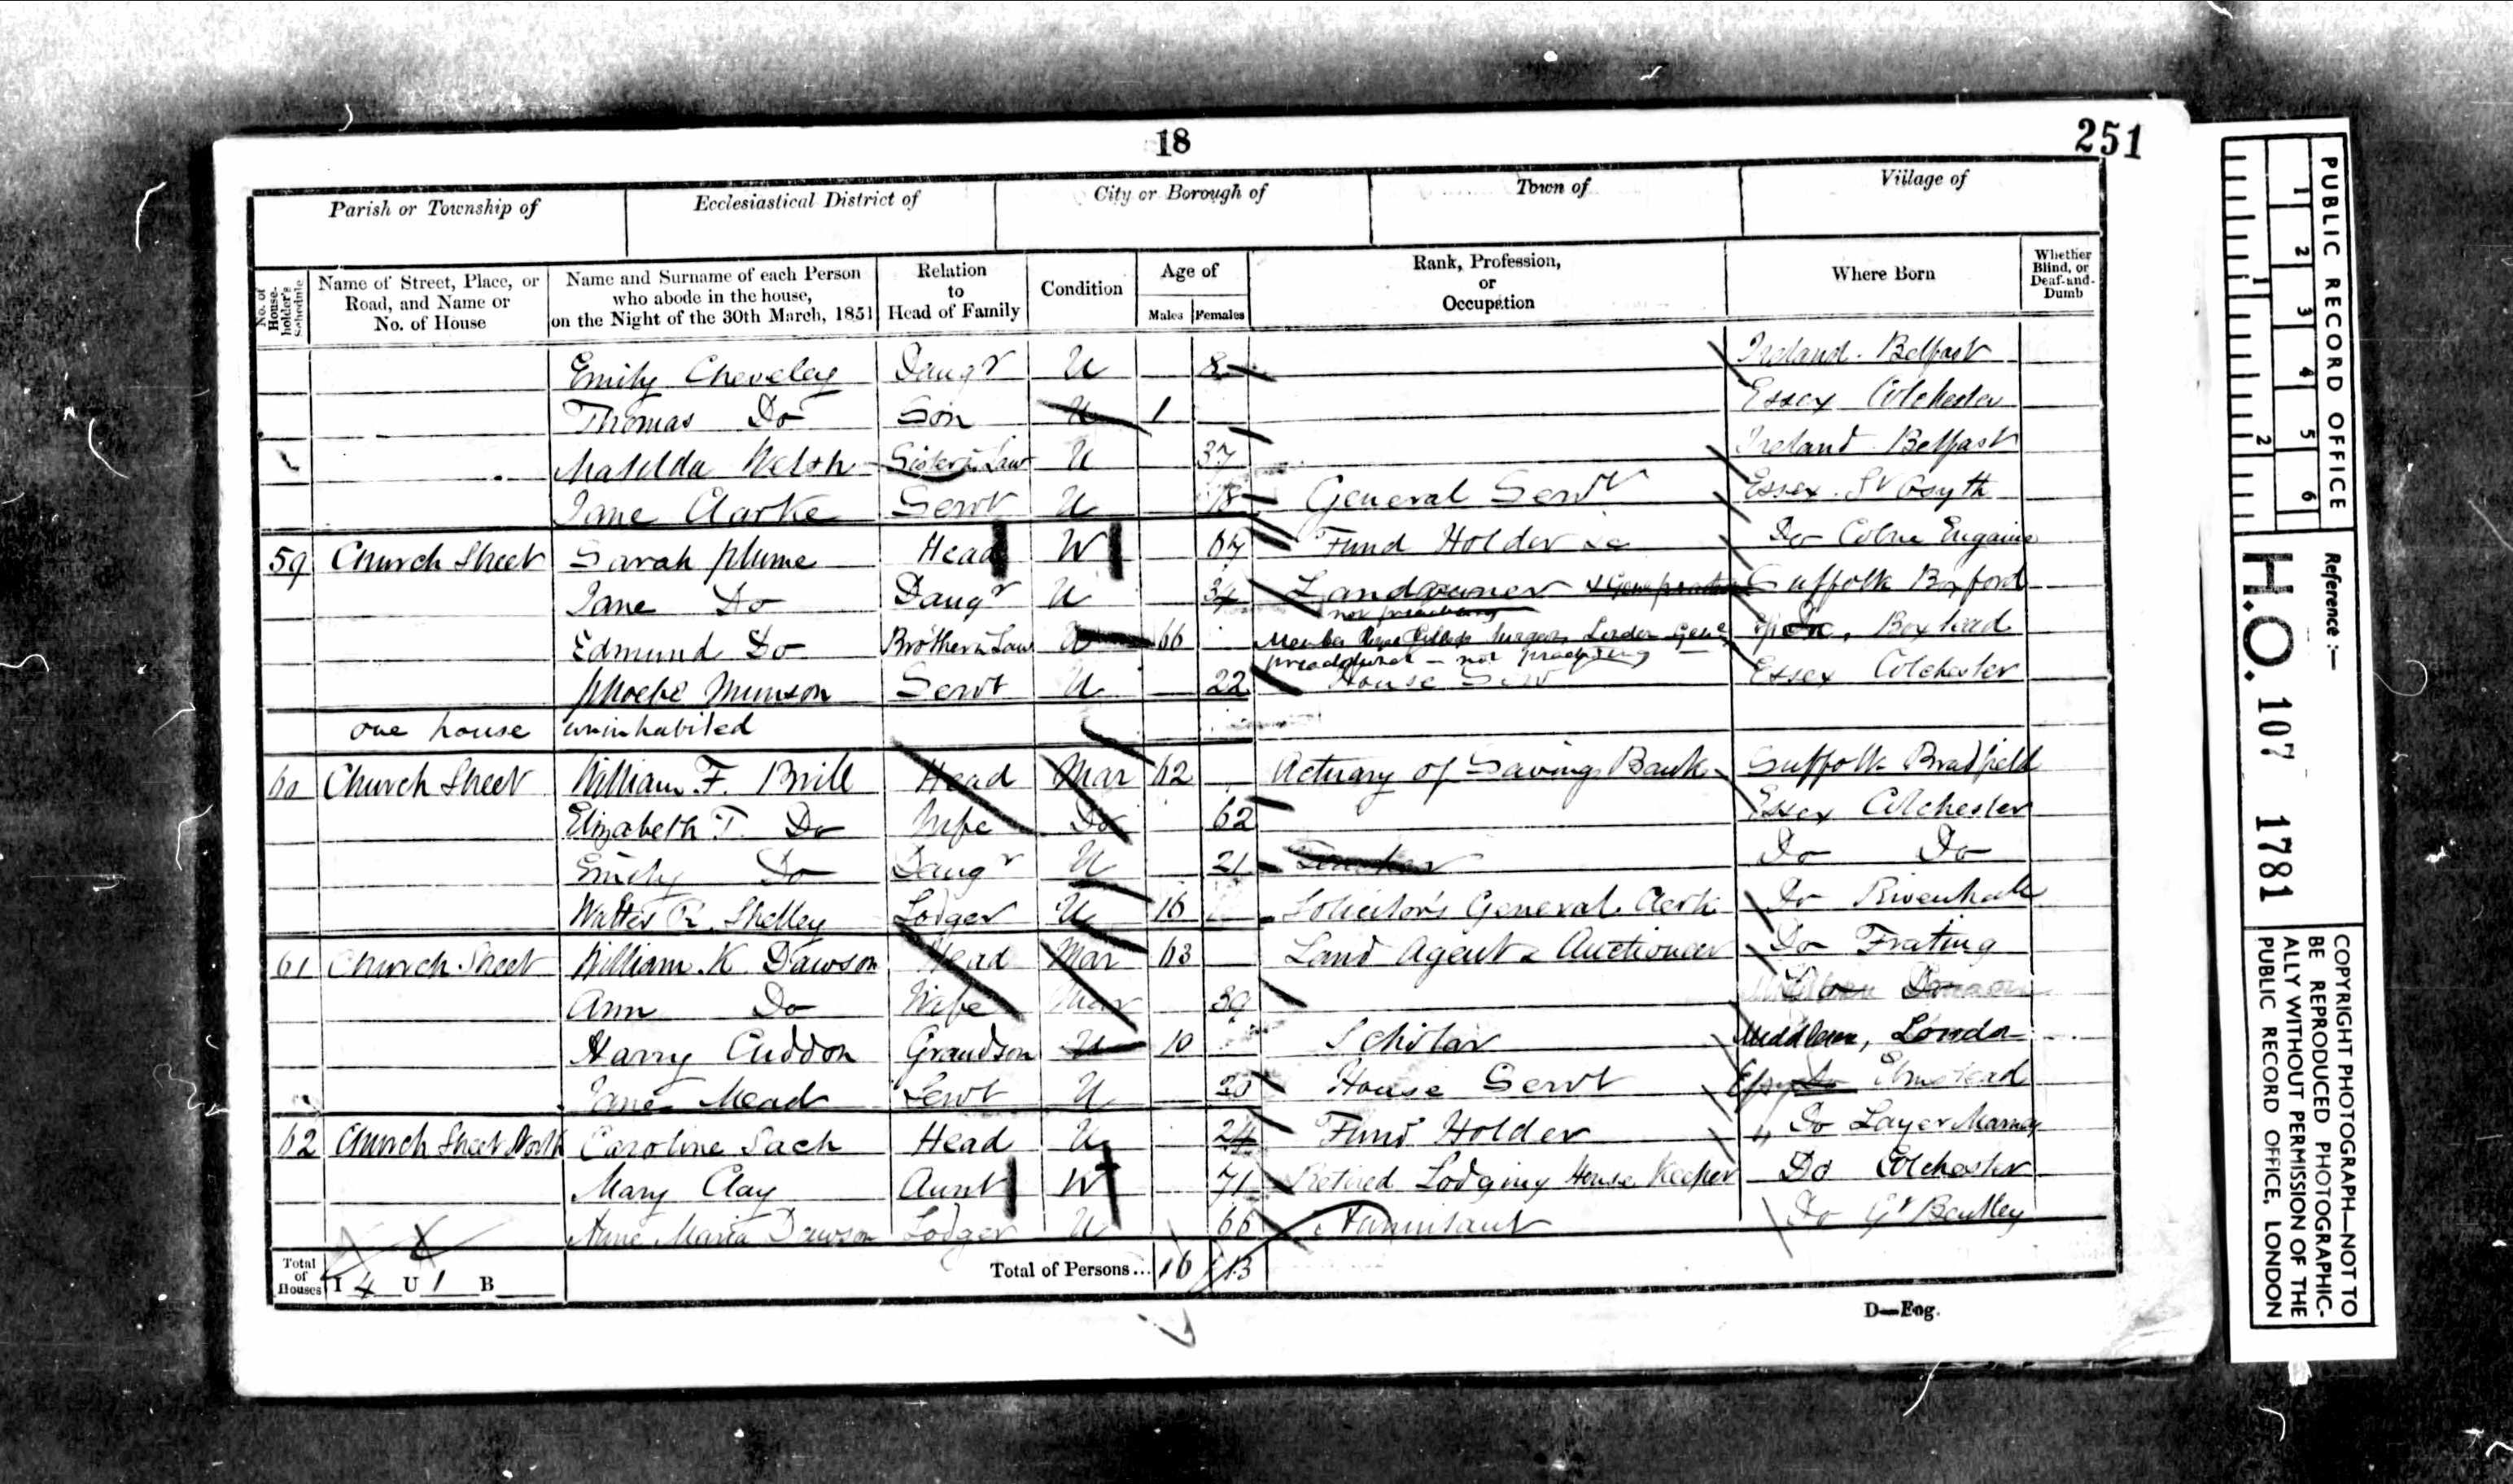 18
251
Parish or Township of Ecclesiastical District of City or Borough of Town of Village of
No. of House-holder's Schedule
Name of Street, Place, or Road, and Name or No. of House
Name and Surname of each Person who abode in the house, on the Night of the 30th March, 1851
Relation to Head of Family
Condition
Age of
Males Females
Rank, Profession, or Occupation
Where Born
Whether Blind, or Deaf-and-Dumb
Emily Cheveley Daugr U 8 Ireland Belfast
Thomas Do Son U 1 Essex Colchester
Matilda Welsh Sister in Law U 37 Ireland Belfast
Jane Clarke Servt U 18 General Servt Essex St Osyth
59 Church Street Sarah Plume Head W 67 Fund Holder &c Do Colne Engaine
Jane Do Daugr U 34 Landowner Suffolk Boxford
not practising
Edmund Do Brother in Law U 66 Member Surgeons London Genl Boxtead
not practising
Phoebe Munson Servt U 22 House Servt Essex Colchester
one house uninhabited
60 Church Street William F. Brill Head Mar 62 Actuary of Savings Bank Suffolk Bradfield
Elizabeth T. Do Wife Do 62 Essex Colchester
Emily Do Daugr U 21 Do Do
Walter R. Shelley Lodger U 16 Solicitor's General Clerk Do Rivenhall
61 Church Street William K. Dawson Head Mar 63 Land Agent & Auctioneer Do Frating
Ann Do Wife Mar 39
Harry Cuddon Grandson U 10 Scholar Middlesex, London
Jane Mead Servt U 20 House Servt Essex Elmstead
62 Church Street North Caroline Sach Head U 24 Fund Holder Do Layer Marney
Mary Clay Aunt W 71 Retired Lodging House Keeper Do Colchester
Anne Maria Dawson Lodger U 66 Annuitant Do Gt Bentley
Total of Houses I 4 U 1 B Total of Persons... 6 13
D—Eng.
PUBLIC RECORD OFFICE
1 2 3 4 5 6
1 2
Reference :—
H.O. 107 1781
COPYRIGHT PHOTOGRAPH—NOT TO
BE REPRODUCED PHOTOGRAPHIC-
ALLY WITHOUT PERMISSION OF THE
PUBLIC RECORD OFFICE, LONDON